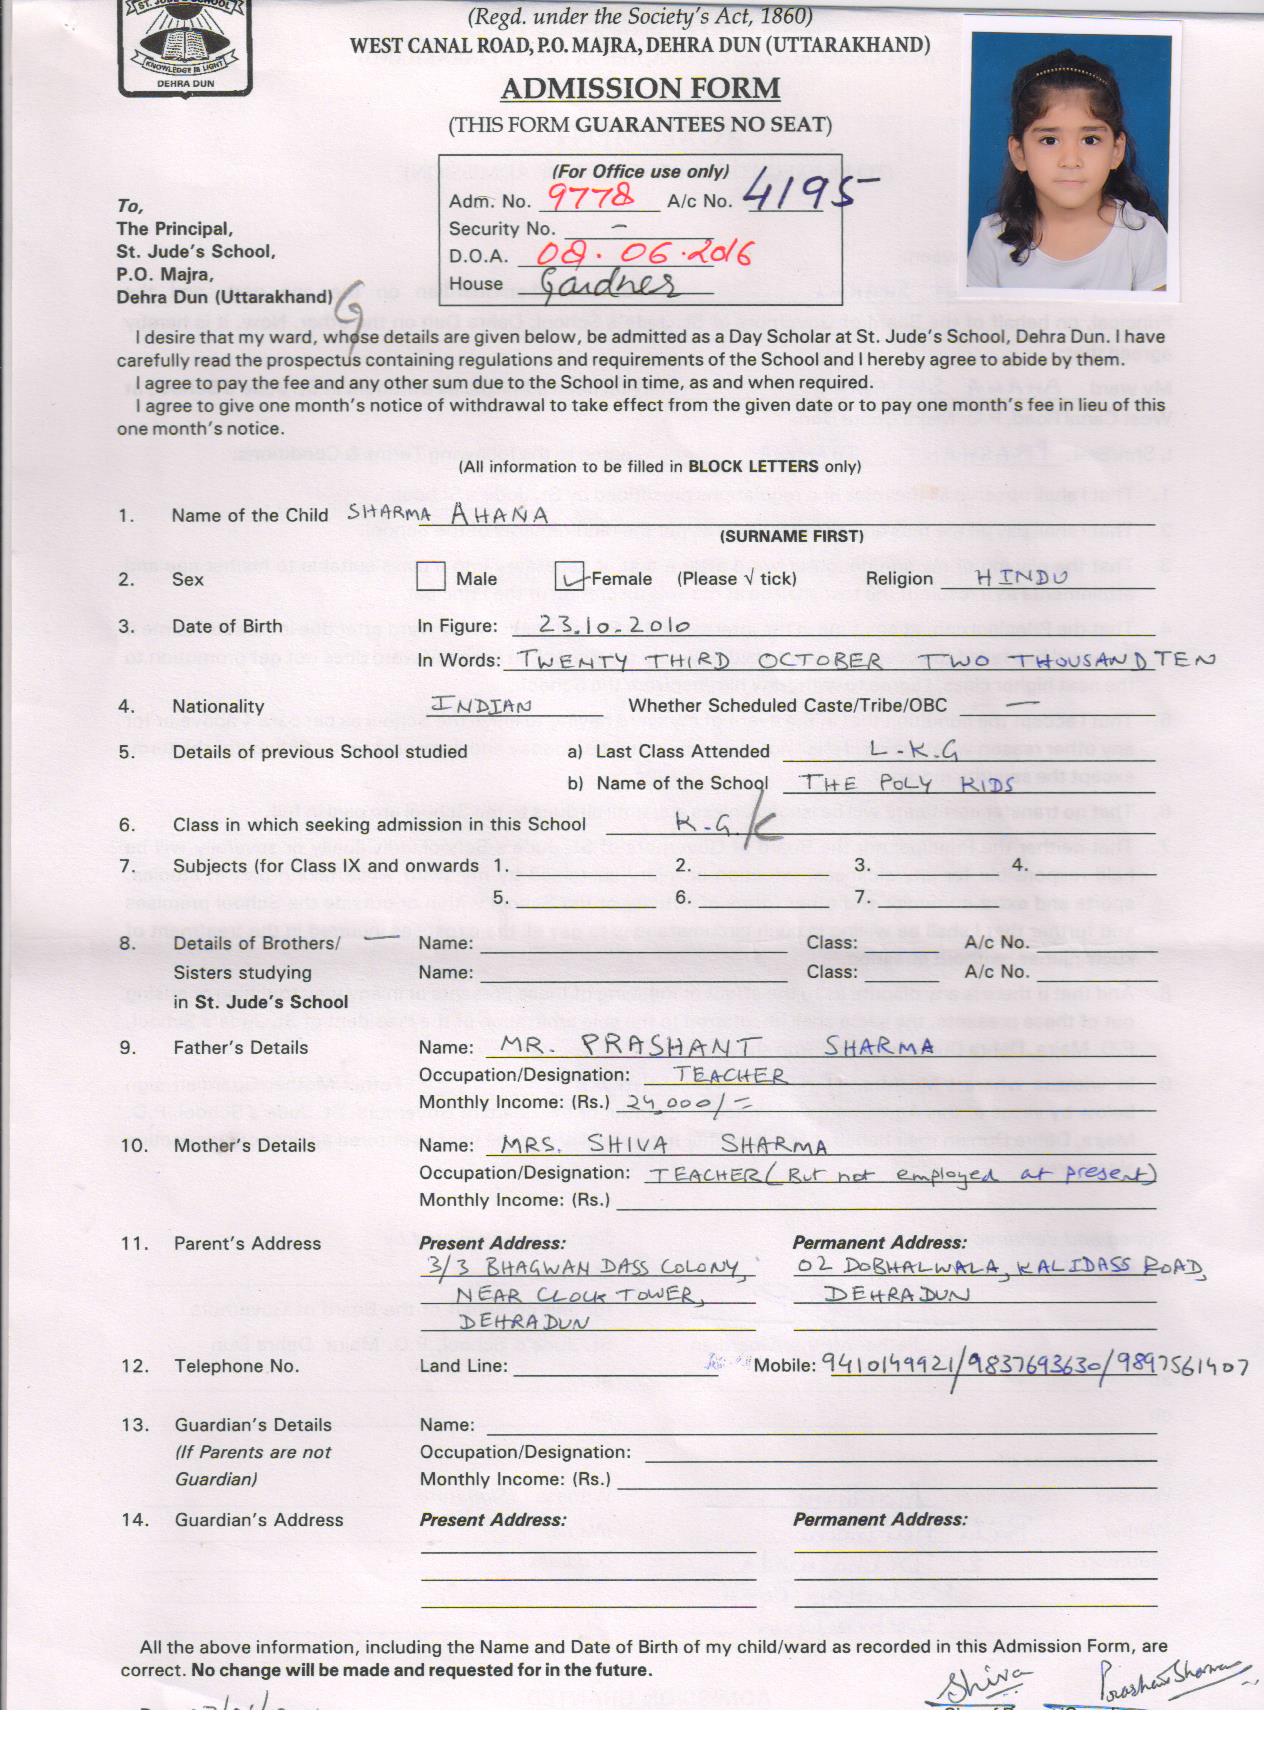 ST. JUDE'S SCHOOL
KNOWLEDGE IS LIGHT
DEHRA DUN
(Regd. under the Society's Act, 1860)
WEST CANAL ROAD, P.O. MAJRA, DEHRA DUN (UTTARAKHAND)
ADMISSION FORM
(THIS FORM GUARANTEES NO SEAT)
(For Office use only)
Adm. No. 9778 A/c No. 4195
Security No. —
D.O.A. 08.06.2016
House Gardner
To,
The Principal,
St. Jude's School,
P.O. Majra,
Dehra Dun (Uttarakhand)
G
I desire that my ward, whose details are given below, be admitted as a Day Scholar at St. Jude's School, Dehra Dun. I have
carefully read the prospectus containing regulations and requirements of the School and I hereby agree to abide by them.
I agree to pay the fee and any other sum due to the School in time, as and when required.
I agree to give one month's notice of withdrawal to take effect from the given date or to pay one month's fee in lieu of this
one month's notice.
(All information to be filled in BLOCK LETTERS only)
1. Name of the Child SHARMA AHANA
(SURNAME FIRST)
2. Sex Male Female (Please √ tick) Religion HINDU
3. Date of Birth In Figure: 23.10.2010
In Words: TWENTY THIRD OCTOBER TWO THOUSAND TEN
4. Nationality INDIAN Whether Scheduled Caste/Tribe/OBC —
5. Details of previous School studied a) Last Class Attended L.K.G
b) Name of the School THE POLY KIDS
6. Class in which seeking admission in this School K.G./C
7. Subjects (for Class IX and onwards 1. 2. 3. 4.
5. 6. 7.
8. Details of Brothers/ — Name: Class: A/c No.
Sisters studying Name: Class: A/c No.
in St. Jude's School
9. Father's Details Name: MR. PRASHANT SHARMA
Occupation/Designation: TEACHER
Monthly Income: (Rs.) 24,000/=
10. Mother's Details Name: MRS. SHIVA SHARMA
Occupation/Designation: TEACHER (But not employed at present)
Monthly Income: (Rs.)
11. Parent's Address Present Address: Permanent Address:
3/3 BHAGWAN DASS COLONY, 02 DOBHALWALA, KALIDASS ROAD,
NEAR CLOCK TOWER, DEHRADUN
DEHRADUN
12. Telephone No. Land Line: Mobile: 9410149921/9837693630/9897561407
13. Guardian's Details Name:
(If Parents are not Occupation/Designation:
Guardian) Monthly Income: (Rs.)
14. Guardian's Address Present Address: Permanent Address:
All the above information, including the Name and Date of Birth of my child/ward as recorded in this Admission Form, are
correct. No change will be made and requested for in the future.
Shiva Prashant Sharma